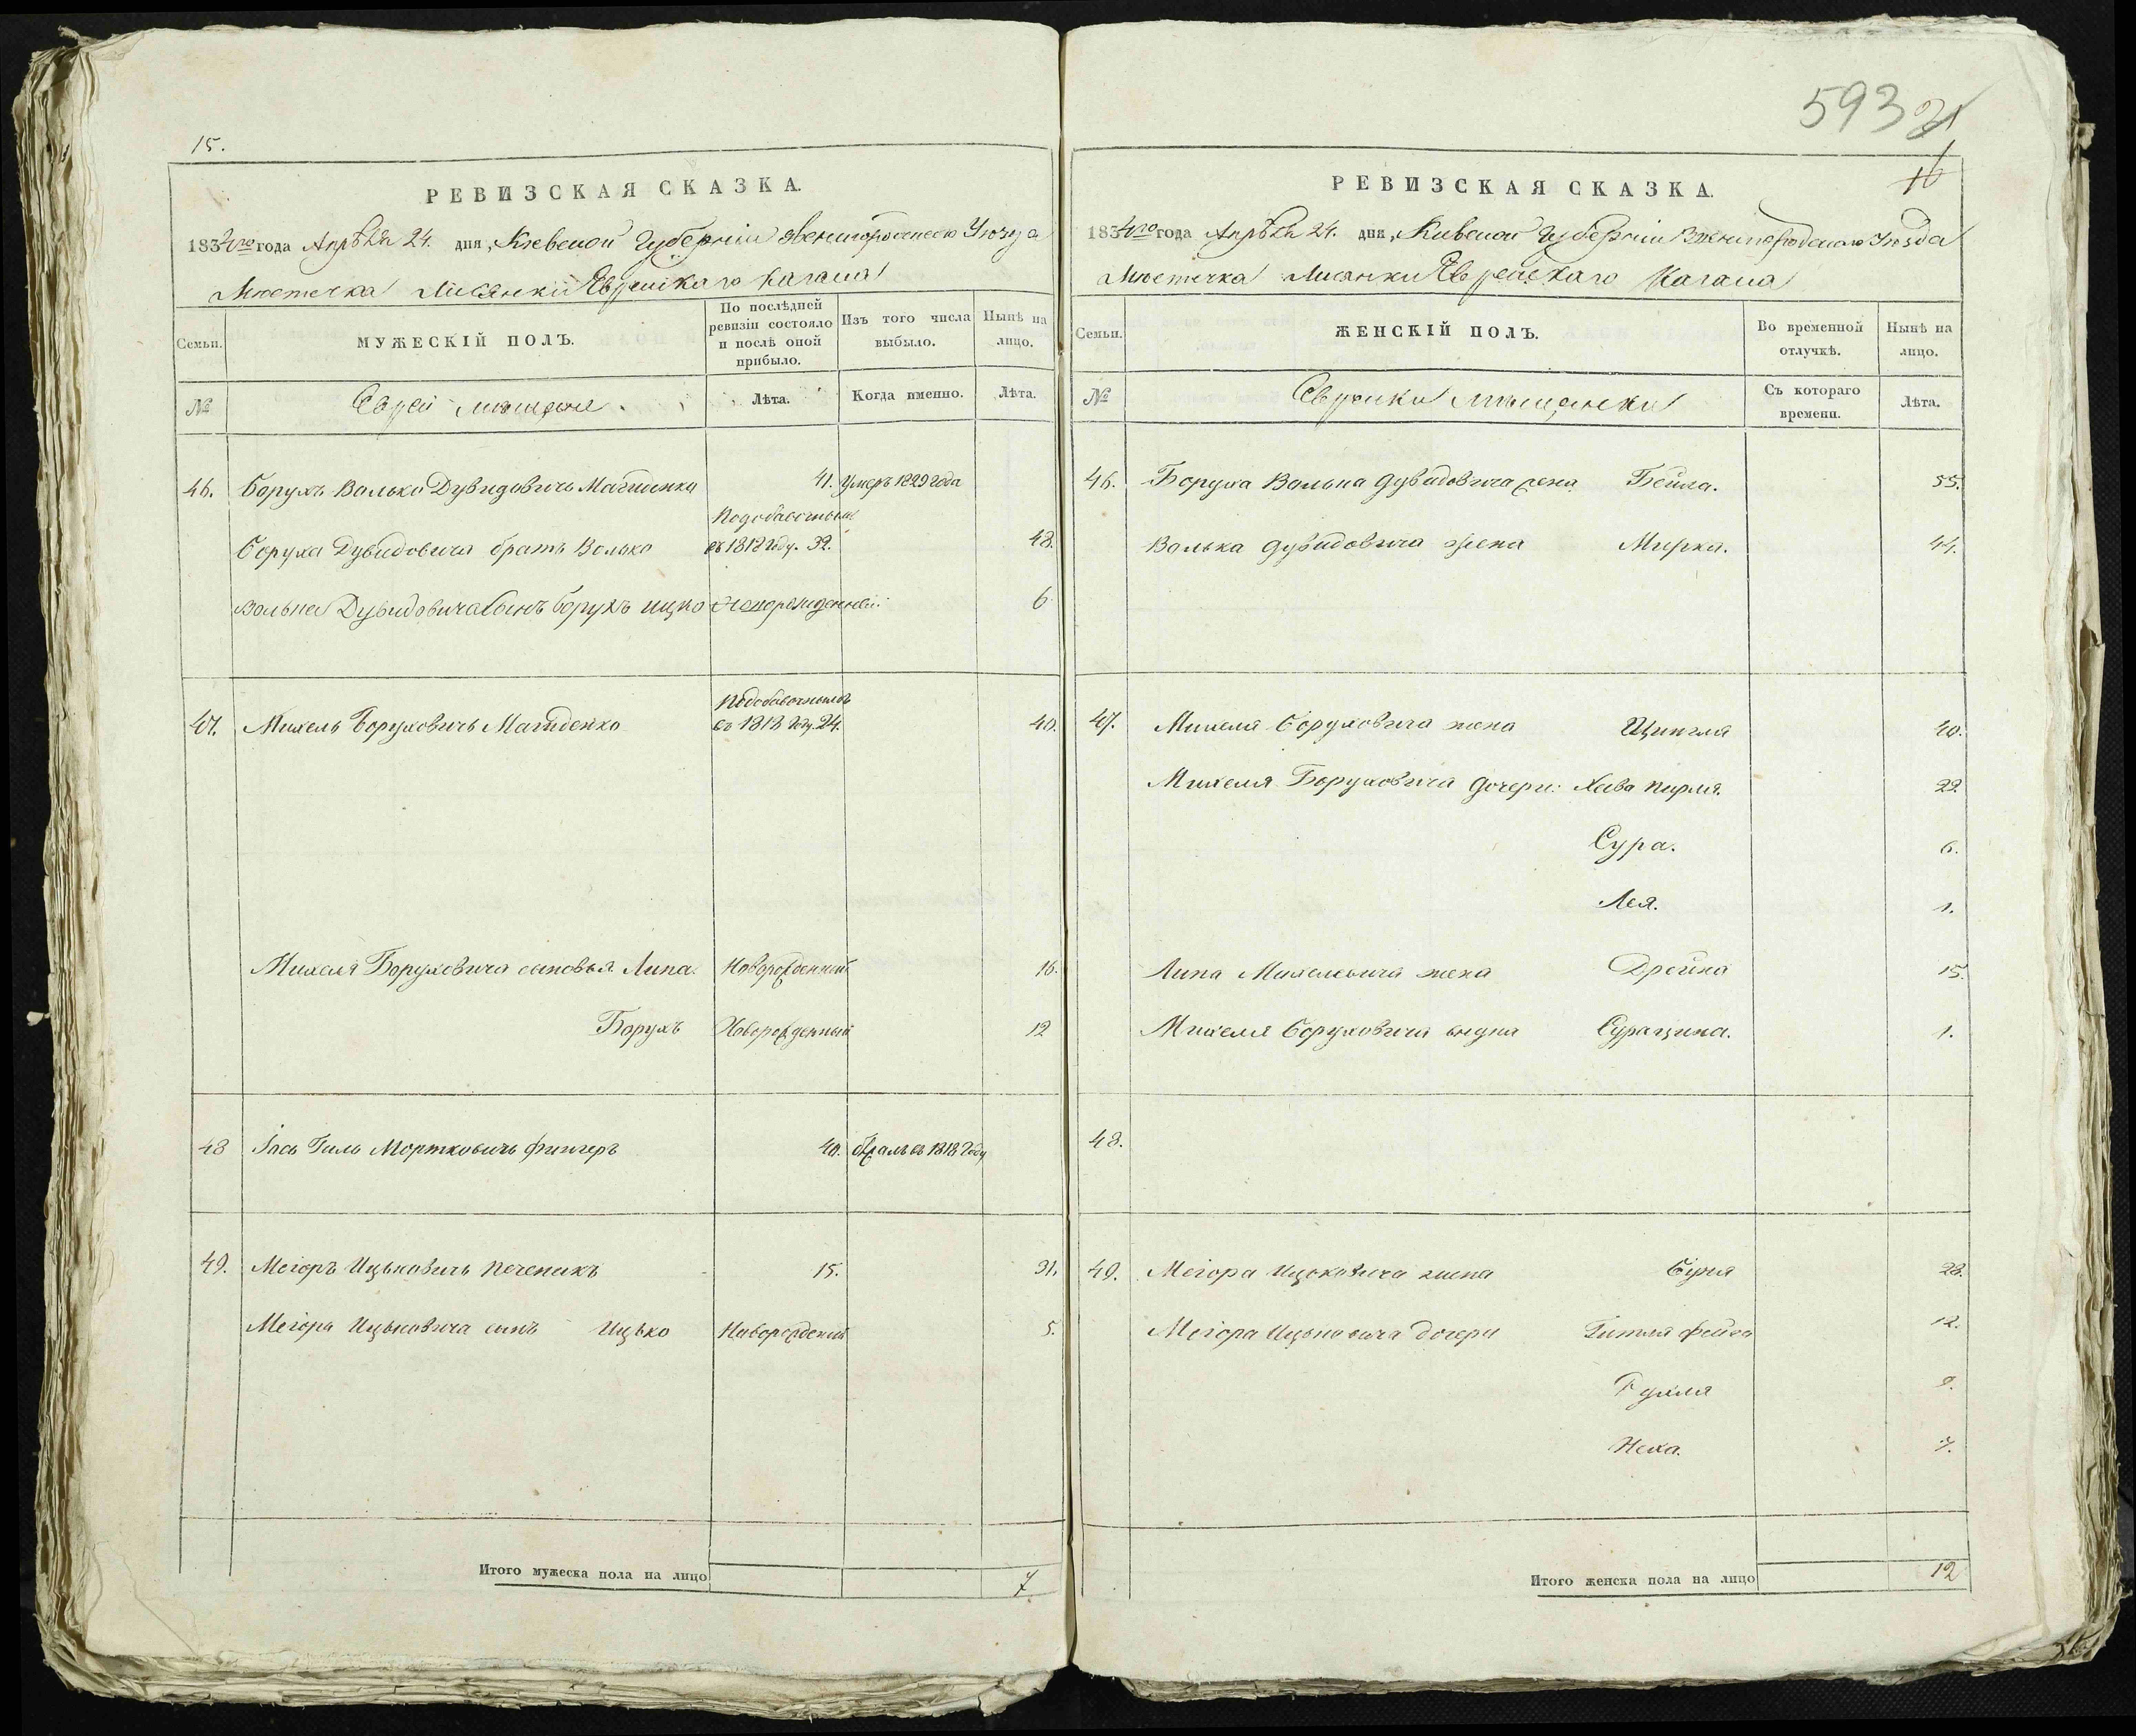 15.
РЕВИЗСКАЯ СКАЗКА.
1834го года Апрѣля 24. дня, Кіевской Губерніи Звенигородского Уѣзда
Мѣстечка Лисянки Еврейскаго Кагала
Семьи.
МУЖЕСКІЙ ПОЛЪ.
По послѣдней ревизіи состояло и послѣ оной прибыло.
Изъ того числа выбыло.
Нынѣ на лицо.
№
Евреи мѣщане.
Лѣта.
Когда именно.
Лѣта.
46. Борухъ Волько Дувидовичь Магиденко 41. Умеръ 1829 года
Борухa Дувидовича братъ Волько Подобавочнымъ въ 1818 году. 32. 48.
Волька Дувидовича сынъ Борухъ Ицко Новорожденный. 6
47. Михель Боруховичь Магиденко Подобавочнымъ въ 1818 году. 24. 40.
Михеля Боруховича сыновья Липа. Новорожденный 16.
Борухъ Новорожденный 12
48 Іось Гиль Мортковичь Фингеръ 40. въ 1818 году
49. Меіоръ Ицьковичь Печеникъ 15. 31.
Меіора Ицьковича сынъ Ицько Новорожденый 5.
Итого мужеска пола на лицо 7
593
21
16
РЕВИЗСКАЯ СКАЗКА.
1834го года Апрѣля 24. дня, Кіевской Губерніи Звенигородского Уѣзда
Мѣстечка Лисянки Еврейскаго Кагала
Семьи.
ЖЕНСКІЙ ПОЛЪ.
Во временной отлучкѣ.
Нынѣ на лицо.
№
Еврейки мѣщанки
Съ котораго времени.
Лѣта.
46. Боруха Волька Дувидовича жена Бейла. 55.
Волька Дувидовича жена Мирка. 44.
47. Михеля Боруховича жена Ципгля 40.
Михеля Боруховича дочери: Хава Перля. 22
Сура. 6.
Лея. 1.
Липа Михелевича жена Дрейна 15.
Михеля Боруховича внука Сурацина. 1.
48.
49. Меіора Ицьковича жена Буня 28.
Меіора Ицьковича дочери Гитля Фейга 12.
Рухля 9.
Неха. 7.
Итого женска пола на лицо 12